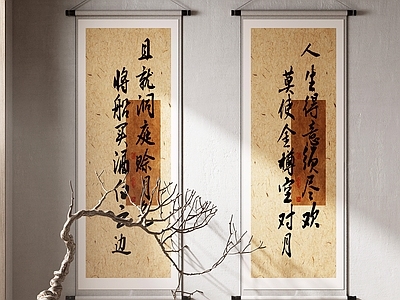 人生得意须尽欢
莫使金樽空对月
且就洞庭赊月色
将船买酒白云边